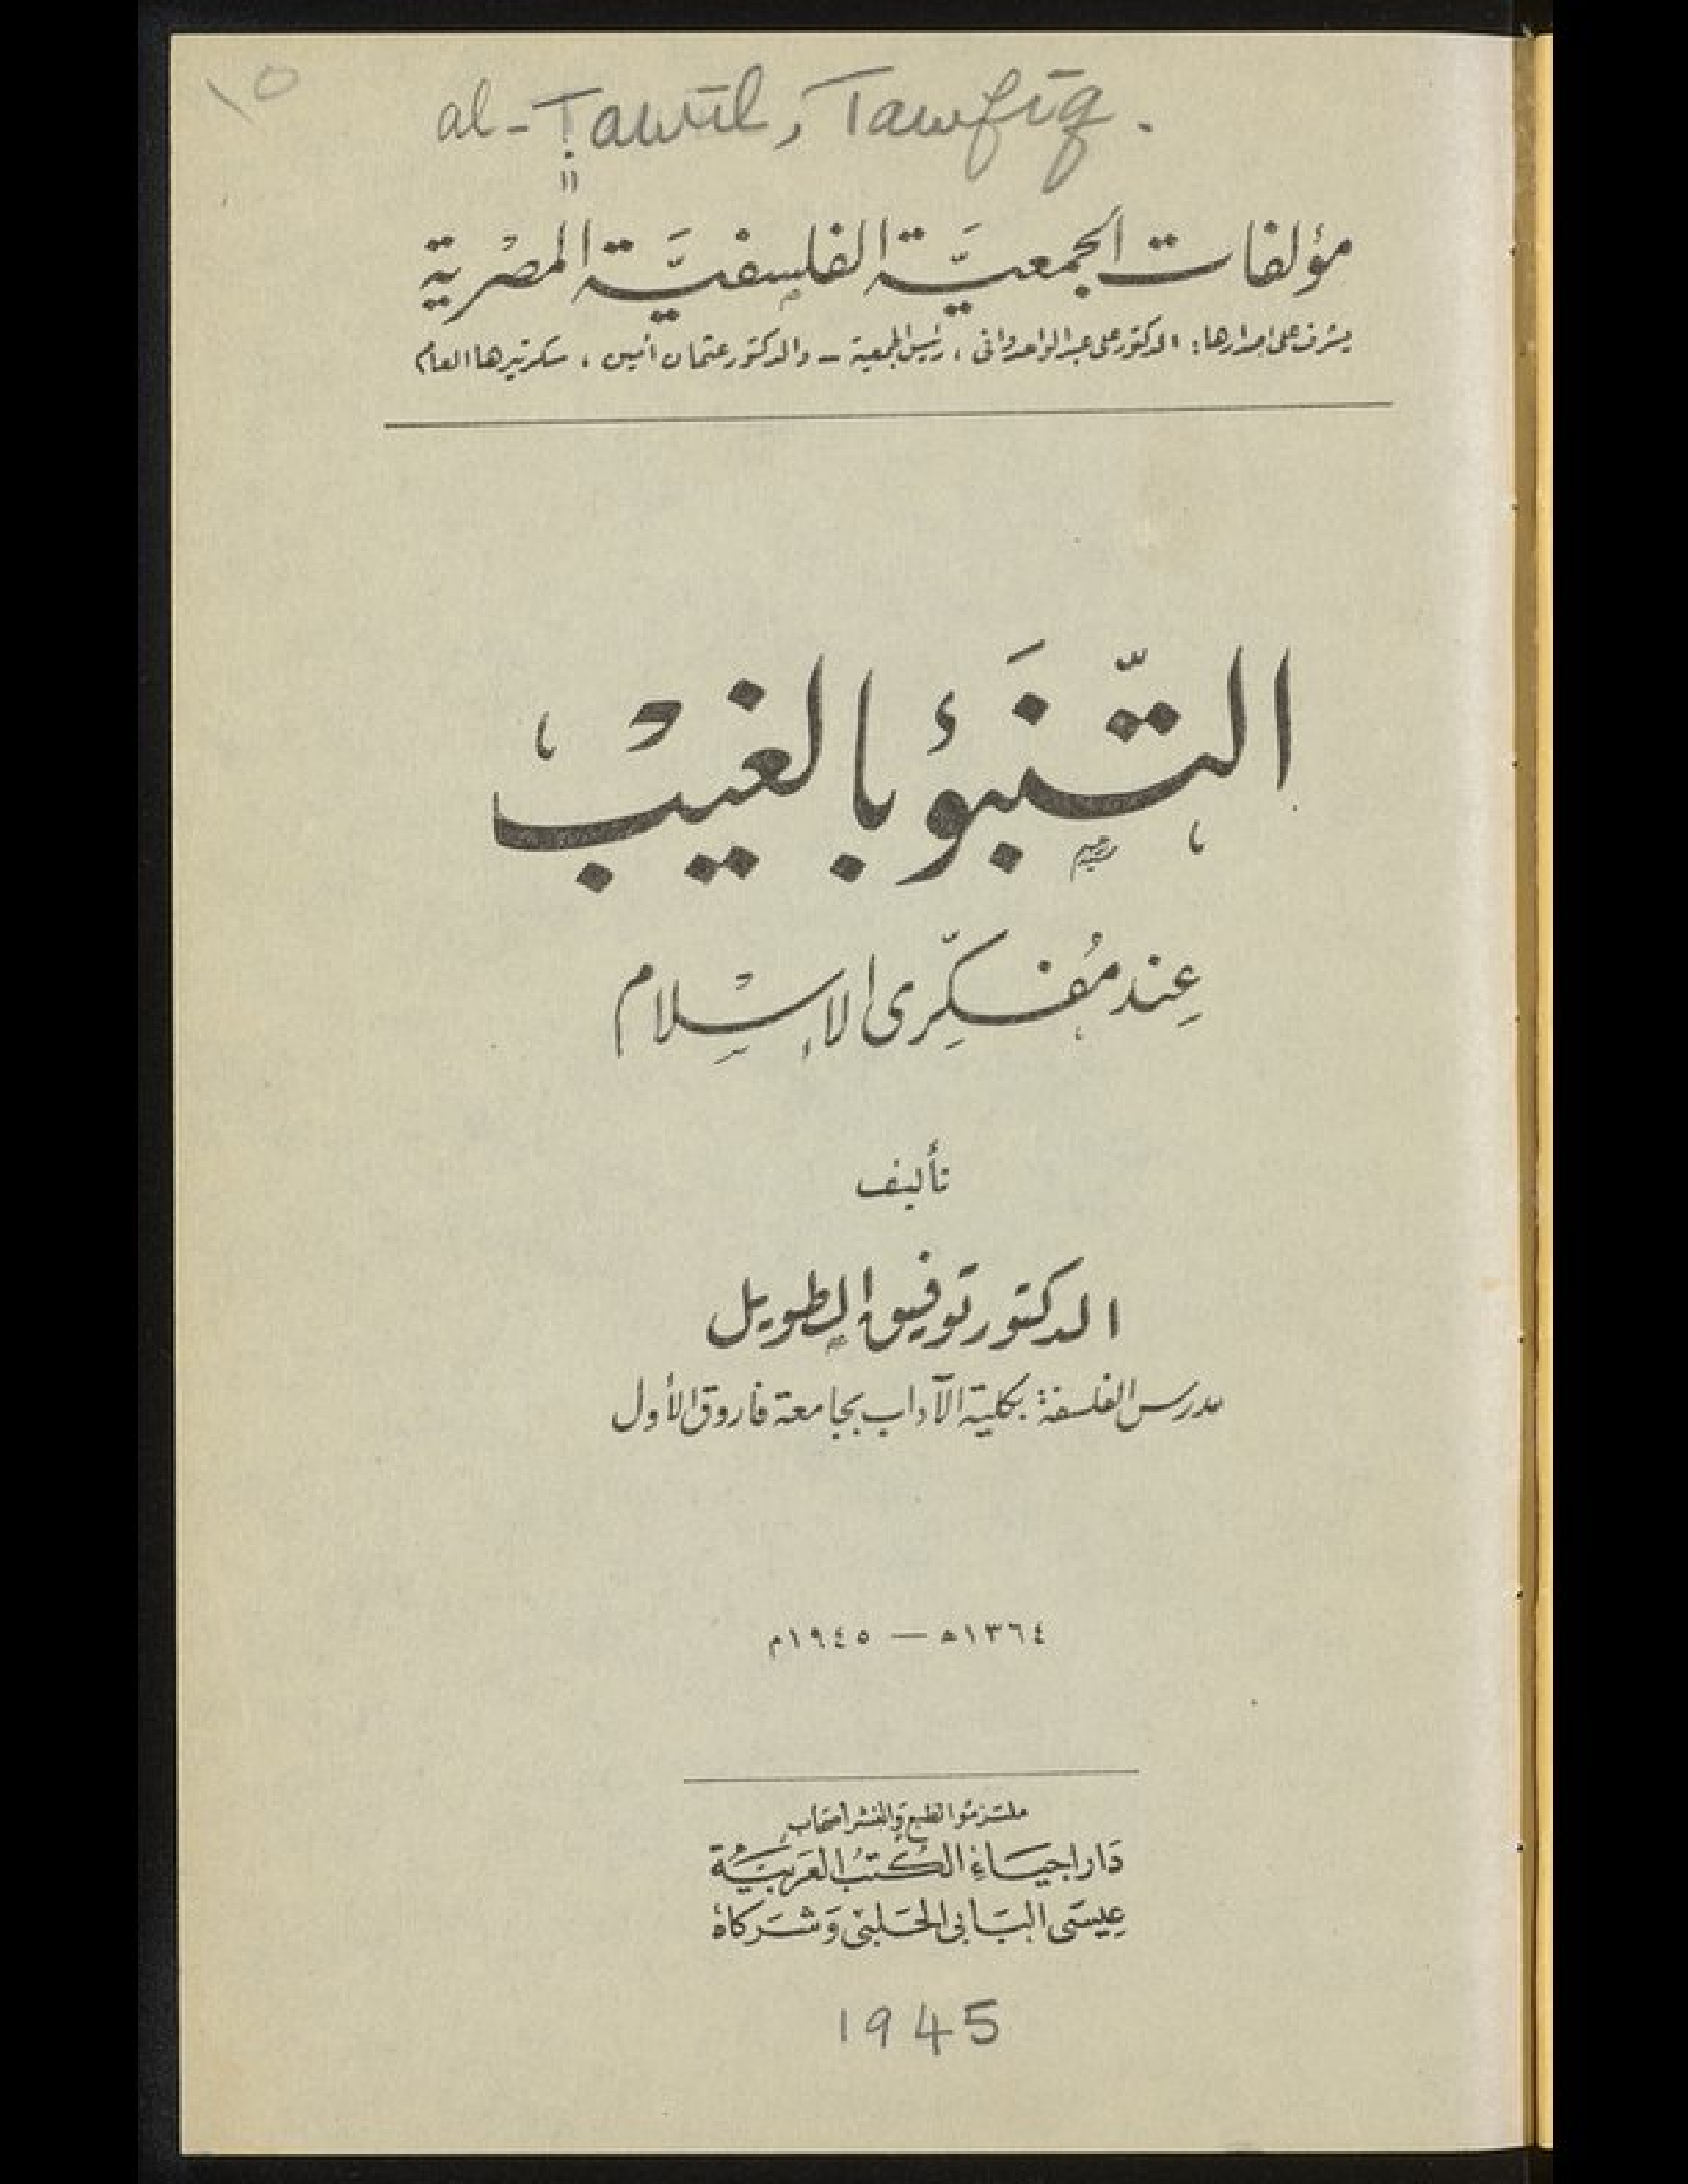 ١٥
al-Ṭawīl, Tawfīq.
"
مؤلفات الجمعيَّة الفلسفيَّة المصْرية
يشرف على إصدارها: الدكتور على عبد الواحد وافى ، رئيس الجمعية — والدكتور عثمان أمين ، سكرتيرها العام
التّنَبؤ بالغيْب
عِند مُفكِّرى الإسْلام
تأليف
الدكتور توفيق الطويل
مدرس الفلسفة بكلية الآداب بجامعة فاروق الأول
١٣٦٤ھ — ١٩٤٥م
ملتزمو الطبع والنشر أصحاب
دَار إحيَاء الكُتبُ العَربَيَّة
عِيسَى البَابى الحَلبى وَشَركاهُ
1945